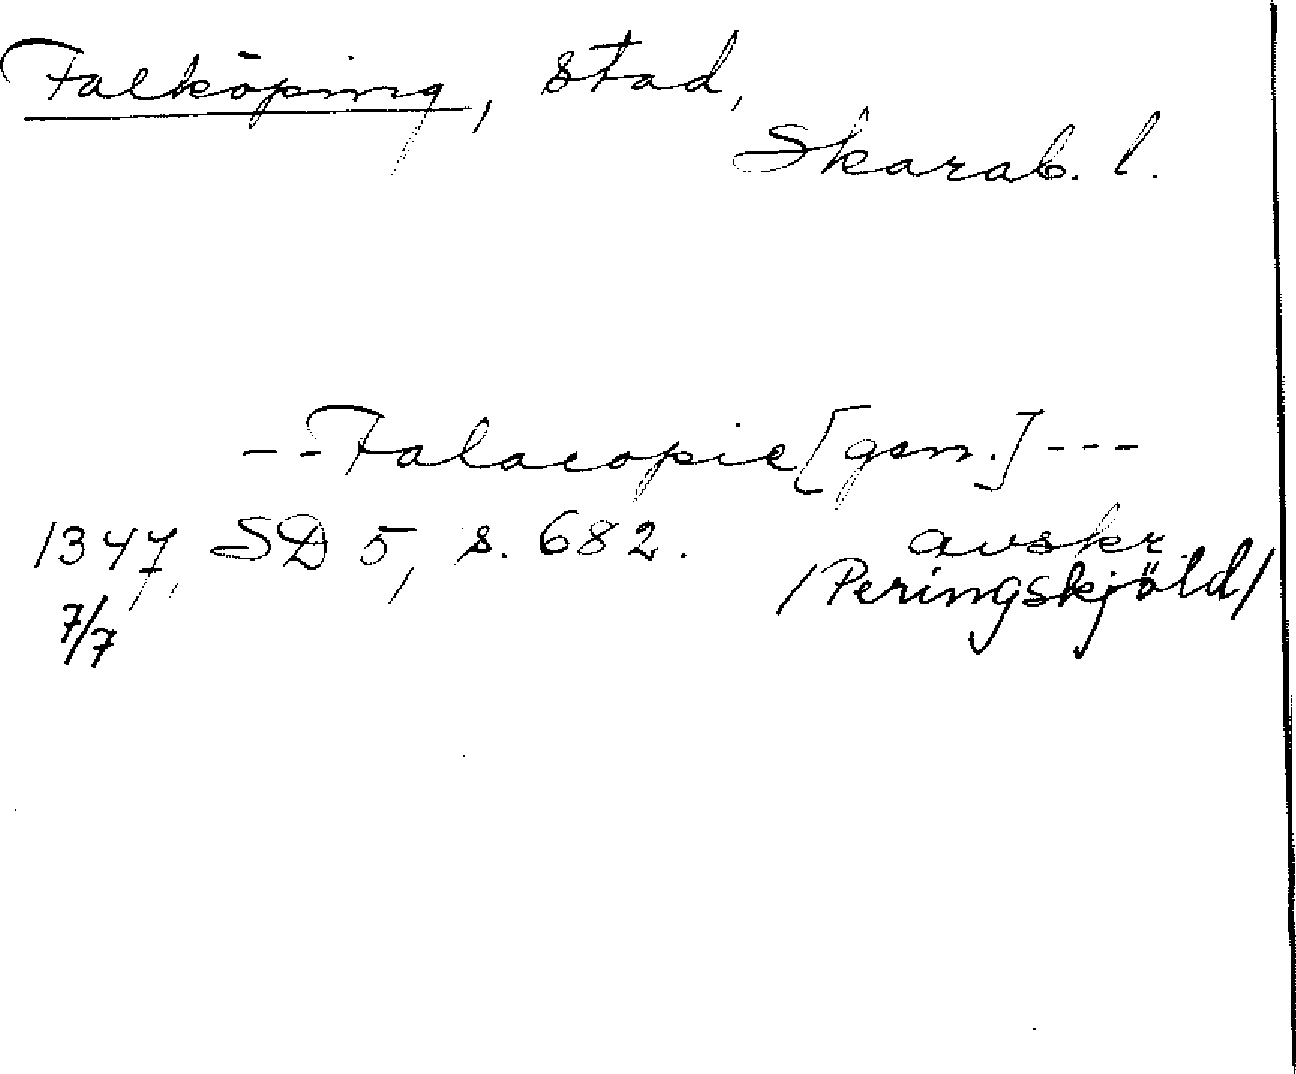 Falköping, stad,
Skarab. l.
--Falacopie [gen.]---
1347, SD 5, s. 682. avskr.
7/7 /Peringskjöld/